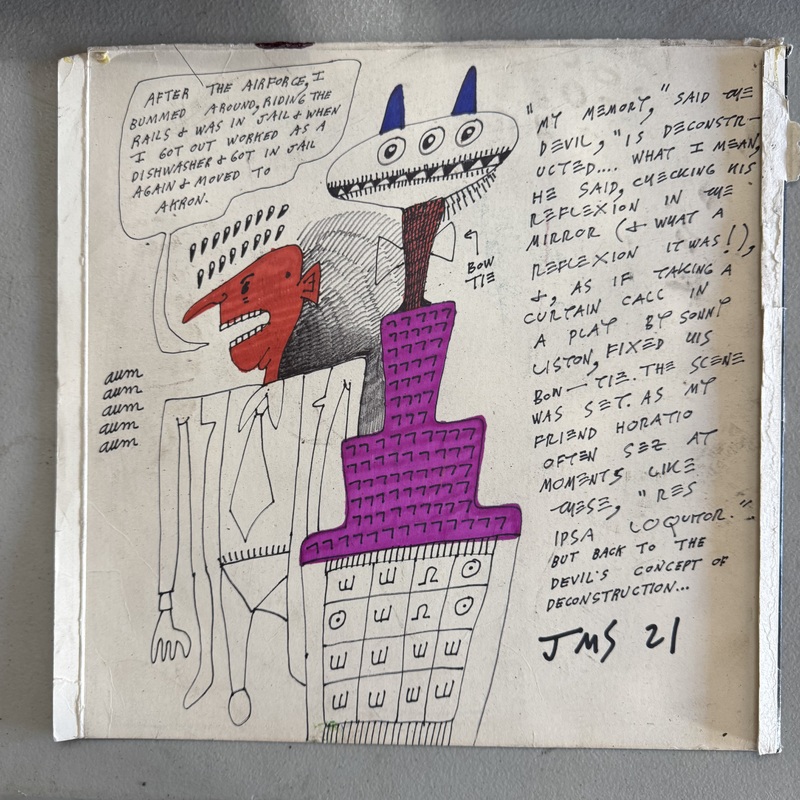 AFTER THE AIRFORCE, I
BUMMED AROUND, RIDING THE
RAILS & WAS IN JAIL & WHEN
I GOT OUT WORKED AS A
DISHWASHER & GOT IN JAIL
AGAIN & MOVED TO
AKRON.
aum
aum
aum
aum
aum
BOW
TIE
"MY MEMORY," SAID THE
DEVIL, "IS DECONSTR-
UCTED.... WHAT I MEAN,
HE SAID, CHECKING HIS
REFLEXION IN THE
MIRROR (& WHAT A
REFLEXION IT WAS!),
&, AS IF TAKING A
CURTAIN CALL IN
A PLAY BY SONNY
LISTON, FIXED HIS
BOW-TIE. THE SCENE
WAS SET. AS MY
FRIEND HORATIO
OFTEN SEZ AT
MOMENTS LIKE
THESE, "RES
IPSA LOQUITOR."
BUT BACK TO THE
DEVIL'S CONCEPT OF
DECONSTRUCTION...
JMS 21